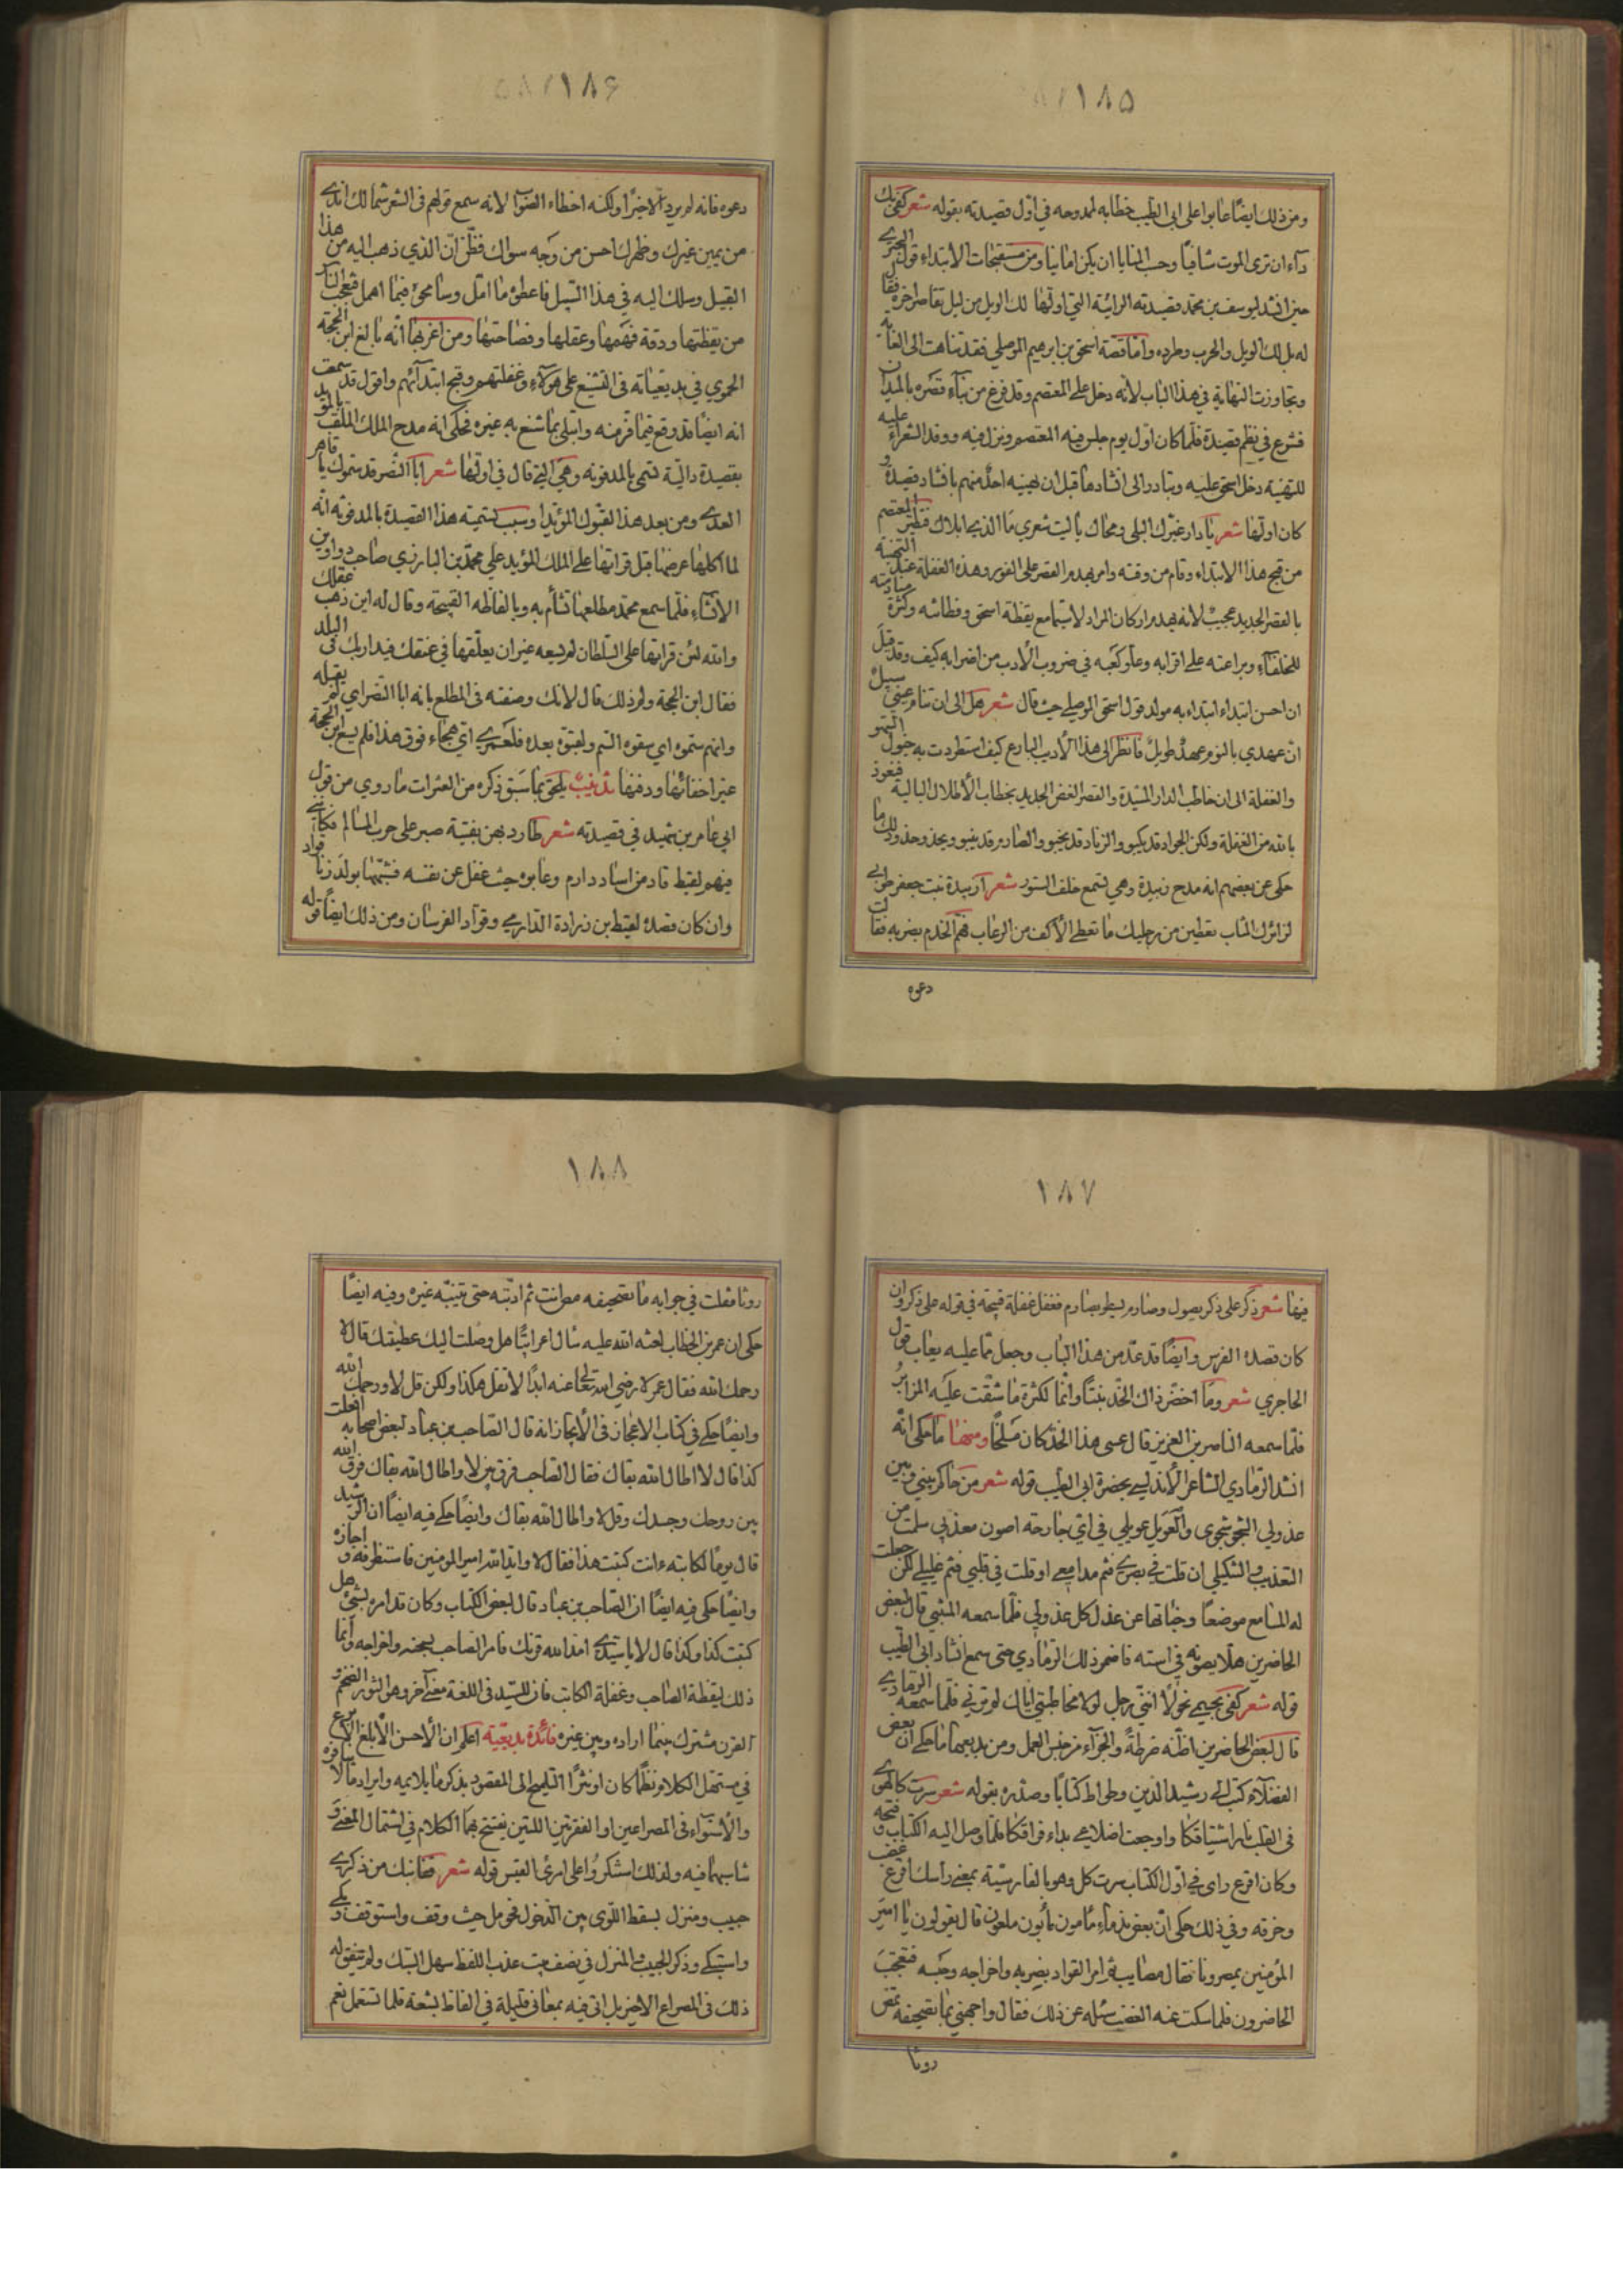 ١٨٥
ومن ذلك ايضًا عابوا على ابى الطيب خطابه لممدوحه في اوّل قصيدته بقوله شعر كفى بك
دآء ان ترى الموت شافيًا وحسب المنايا ان يكن امانيا ومن مستقبحات الابتداء قول البحتري
حين انشد ليوسف بن محمد قصيدته الرائية التي اولها لك الويل من ليل تقاصر اخره فقال
له بل لك الويل والحرب وطرده وامّا قصة اسحق بن ابرهيم الموصلي فقد تناهت الى الغاية
وتجاوزت النهاية في هذا الباب لانه دخل على المعتصم وقد فرغ من بنآء قصره بالميدان
فشرع في نظم قصيدة فلما كان اول يوم جلس فيه المعتصم ونزل فيه ووفد الشعراء عليه
للتهنية دخل اسحق عليه وتبادر الى انشادها قبل ان يهنيه احد منهم بانشاد قصيدة و
كان اولها شعر يا دار غيّرك البلى ومحاك يا ليت شعري ما الذي ابلاك فتطير المعتصم
من قبح هذا الابتداء وقام من وقته وامر بهدم القصر على الفور وهذه الغفلة عند التهنية
بالقصر الجديد عجيب لانه يهدم اركان المراد لاسيّما مع يقظة اسحق وفطانته وكثرة منادمته
للخلفاء وبراعته على اقرانه وعلو كعبه في ضروب الأدب من اضرابه كيف وقد قيل
ان احسن ابتداء ابتداء به مولد قول اسحق الموصلي حيث قال شعر هل الى ان تنام عيني سبيل
انّ عهدي بالنوم عهد طويل فانظر الى هذا الأديب البارع كيف استطردت به خيول السهو
والغفلة الى ان خاطب الدار المشيدة والقصر الغض الجديد بخطاب الأطلال البالية فنعوذ
بالله من الغفلة ولكن الجواد قد يكبو والزناد قد يخبو والصارم قد ينبو ويحذو حذو ذلك ما
حكى عن بعضهم انه مدح زبيدة وهي تسمع خلف الستور شعر أزبيدة بنت جعفر طوبى
لزائرك المثاب تعطين من رجليك ما تعطى الأكف من الرغاب فهمّ الخدم بضربه فقالت
دعوه
١٨٦
دعوه فانه لم يرد الا خيرًا ولكنه اخطاء الصواب لانه سمع قولهم فى الشعر شمالك اندى
من يمين غيرك وظهرك احسن من وجه سواك فظنّ انّ الذي ذهب اليه من هذا
القبيل وسلك اليه في هذا السبيل فاعطى ما امّل وسامحى فيما اهمل فتعجب الناس
من يقظتها ودقة فهمها وعقلها وفصاحتها ومن اغربها انّه بالغ ابن الحجة
الحموي في بديعياته فى التشنيع على هؤلآء وغفلتهم وقبح ابتدآئهم واقول قد سمعت
انه ايضًا قد وقع فيما فرّ منه وابتلى بما شنع به غيره فحكى انه مدح الملك الملقب بالمؤيد
بقصيدة دالية تسمى بالمدفونه وهي التي قال في اولها شعر ابا النصر قد سموك يا قاهر
العدى ومن بعد هذا لقبوك المؤيدا وسبب تسميته هذا القصيدة بالمدفونه انّه
لما اكلها عرضها قبل قرائتها على الملك المؤيد على محمد بن البارزي صاحب دواوين
الانشاء فلما سمع محمد مطلعها تشأم به وبالفاظه القبيحة وقال له اين ذهب عقلك
والله لئن قراتها على السلطان لم يسعه غير ان يعلّقها في عنقك فيدار بك فى البلد
فقال ابن الحجة ولم ذلك قال لانك وصفته فى المطلع بانه ابا النصر اي لم يقبله
وانهم سمّوه اي سقوه السم ولعبوّه بعده فلعمري اي هجاء فوق هذا فلم يسع ابن الحجة
غير اخفائها ودفنها تذنيب يلحق بما سبق ذكره من العثرات ما روي من قول
ابي عامر بن شهيد في قصيدته شعر طارد بهن بفتية صبر على حرب المسالم فكانّي
فيهم لقيط قاد من اساد دارم وعابوه حيث غفل عن نفسه فشبّهها بولد زنا قواد
وان كان قصده لقيط بن زرارة الدارمي وقوّاد الفرسان ومن ذلك ايضًا قوله
١٨٧
فيها شعر ذكر على ذكر يصول وصارم يسطو بصارم فغفل غفلة قبيحة في قوله على ذكر وان
كان قصده الفرس وايضًا قد عدّ من هذا الباب وجعل ممّا عليه يعاب قول
الحاجري شعر وما اخضرّ ذاك الخّد نبتًا وانّما لكثرة ما شقّت عليه المزابر
فلمّا سمعه الناصر بن العزيز قال عسى هذا الخد كان مسلخًا ومنها ما حكى انّه
انشد الرمادي الشاعر الأندلسي بحضرة ابى الطيب قوله شعر من حاكم بيني وبين
عذولي الشجو شجوى والعويل عويلي في اي جارحه اصون معذبي سلمت من
التعذيب والتنكيل ان قلت في بصري فثم مدامعي او قلت في قلبي فثم غليلي لكن جعلت
له المسامع موضعًا وحجاتها عن عذل كل عذولي فلما سمعه المتنبي قال لبعض
الحاضرين هلّا يصونه في استه فاضمر ذلك الرمادي حتى سمع انشاد ابى الطيب
قوله شعر كفى بجسمي نحولًا انّني رجل لولا مخاطبتي اياك لم ترني فلما سمعه الرمادي
قال لبعض الحاضرين اظنّه ضرطةً والجزآء من جنس العمل ومن بديعها ما حكى ان بعض
الفضلآء كتب الى رشيد الدين وطواط كتابًا وصدّره بقوله شعر سرت كالهوى
فى القلب نار اشتياقكا واوجعت اضلاعي بداء فراقكا فلما وصل اليه الكتاب وفتحه
وكان اقرع راى في اوّل الكتاب سرت كل وهو بالفارسيّة بمعنى رأسك اقرع غضب
وخرقه وفي ذلك حكى انّ بعض ندماء مأمون مأبون ملعون قال يقولون يا امير
المؤمنين بمصر ونا فقال مصايب ثم امر القواد بضربه واخراجه وحبسه فتعجب
الحاضرون فلما سكت عنه الغضب سئله عن ذلك فقال واجهني بما بتصحيفه بمص
رونا
١٨٨
رونا فقلت في جوابه ما بتصحيفه مص انت ثم ادّبته حتى يتنبّه غيره وفيه ايضًا
حكى ان عمر بن الخطاب لعنه الله عليه سال اعرابيًّا هل وصلت اليك عطيتك قال لا
رحمك الله فقال عمر لا رضي الله تعالى عنه ابدًا لا تقل هكذا ولكن قل لا ورحمك الله
وايضًا حكى في كتاب الاعجاز فى الأيجاز انه قال الصاحب بن عباد لبعض اصحابه افعلت
كذا قال لا اطال الله بقاك فقال الصاحب فرق بين لا واطال الله بقاك فرق الله
بين روحك وجسدك وقل لا واطال الله بقاك وايضًا حكى فيه ايضًا ان الرشيد
قال يومًا لكاتبه ءانت كتبت هذا فقال لا وايّد الله امير المومنين فاستظرفه و اجازه
وايضًا حكى فيه ايضًا ان الصاحب بن عباد قال لبعض الكتاب وكان قد امره بشئ هل
كتبت كذا وكذا قال لا يا سيّدي امد الله قرنك فامر الصاحب بسجنه واخراجه وانما
ذلك ليقظة الصاحب وغفلة الكاتب فان للسيّد فى اللغة معنى آخر وهو الثور الضخم و
القرن مشترك بينما اراده وبين غيره فائدة بديعية اعلم ان الأحسن الأبلغ الأبرع
في مستهل الكلام نظمًا كان او نثرًا التلميح الى المقصود بذكر ما يلايمه وايراد ما لا ينافره
والأستواء فى المصراعين او الفقرتين اللتين يفتتح بهما الكلام في اشتمال المعنى و
شابهها فيه ولذلك استنكروُا على امرئ القيس قوله شعر قفا نبك من ذكرى
حبيب ومنزل بسقط اللوى بين الدخول فحومل حيث وقف واستوقف وبكى
واستبكى وذكر الحبيب والمنزل في نصف بيت عذب اللفظ سهل السبك ولم يتفق له
ذلك فى المصراع الاخير بل اتى فيه بمعانى قليلة في الفاظ بشعة قلما تستعمل نعم